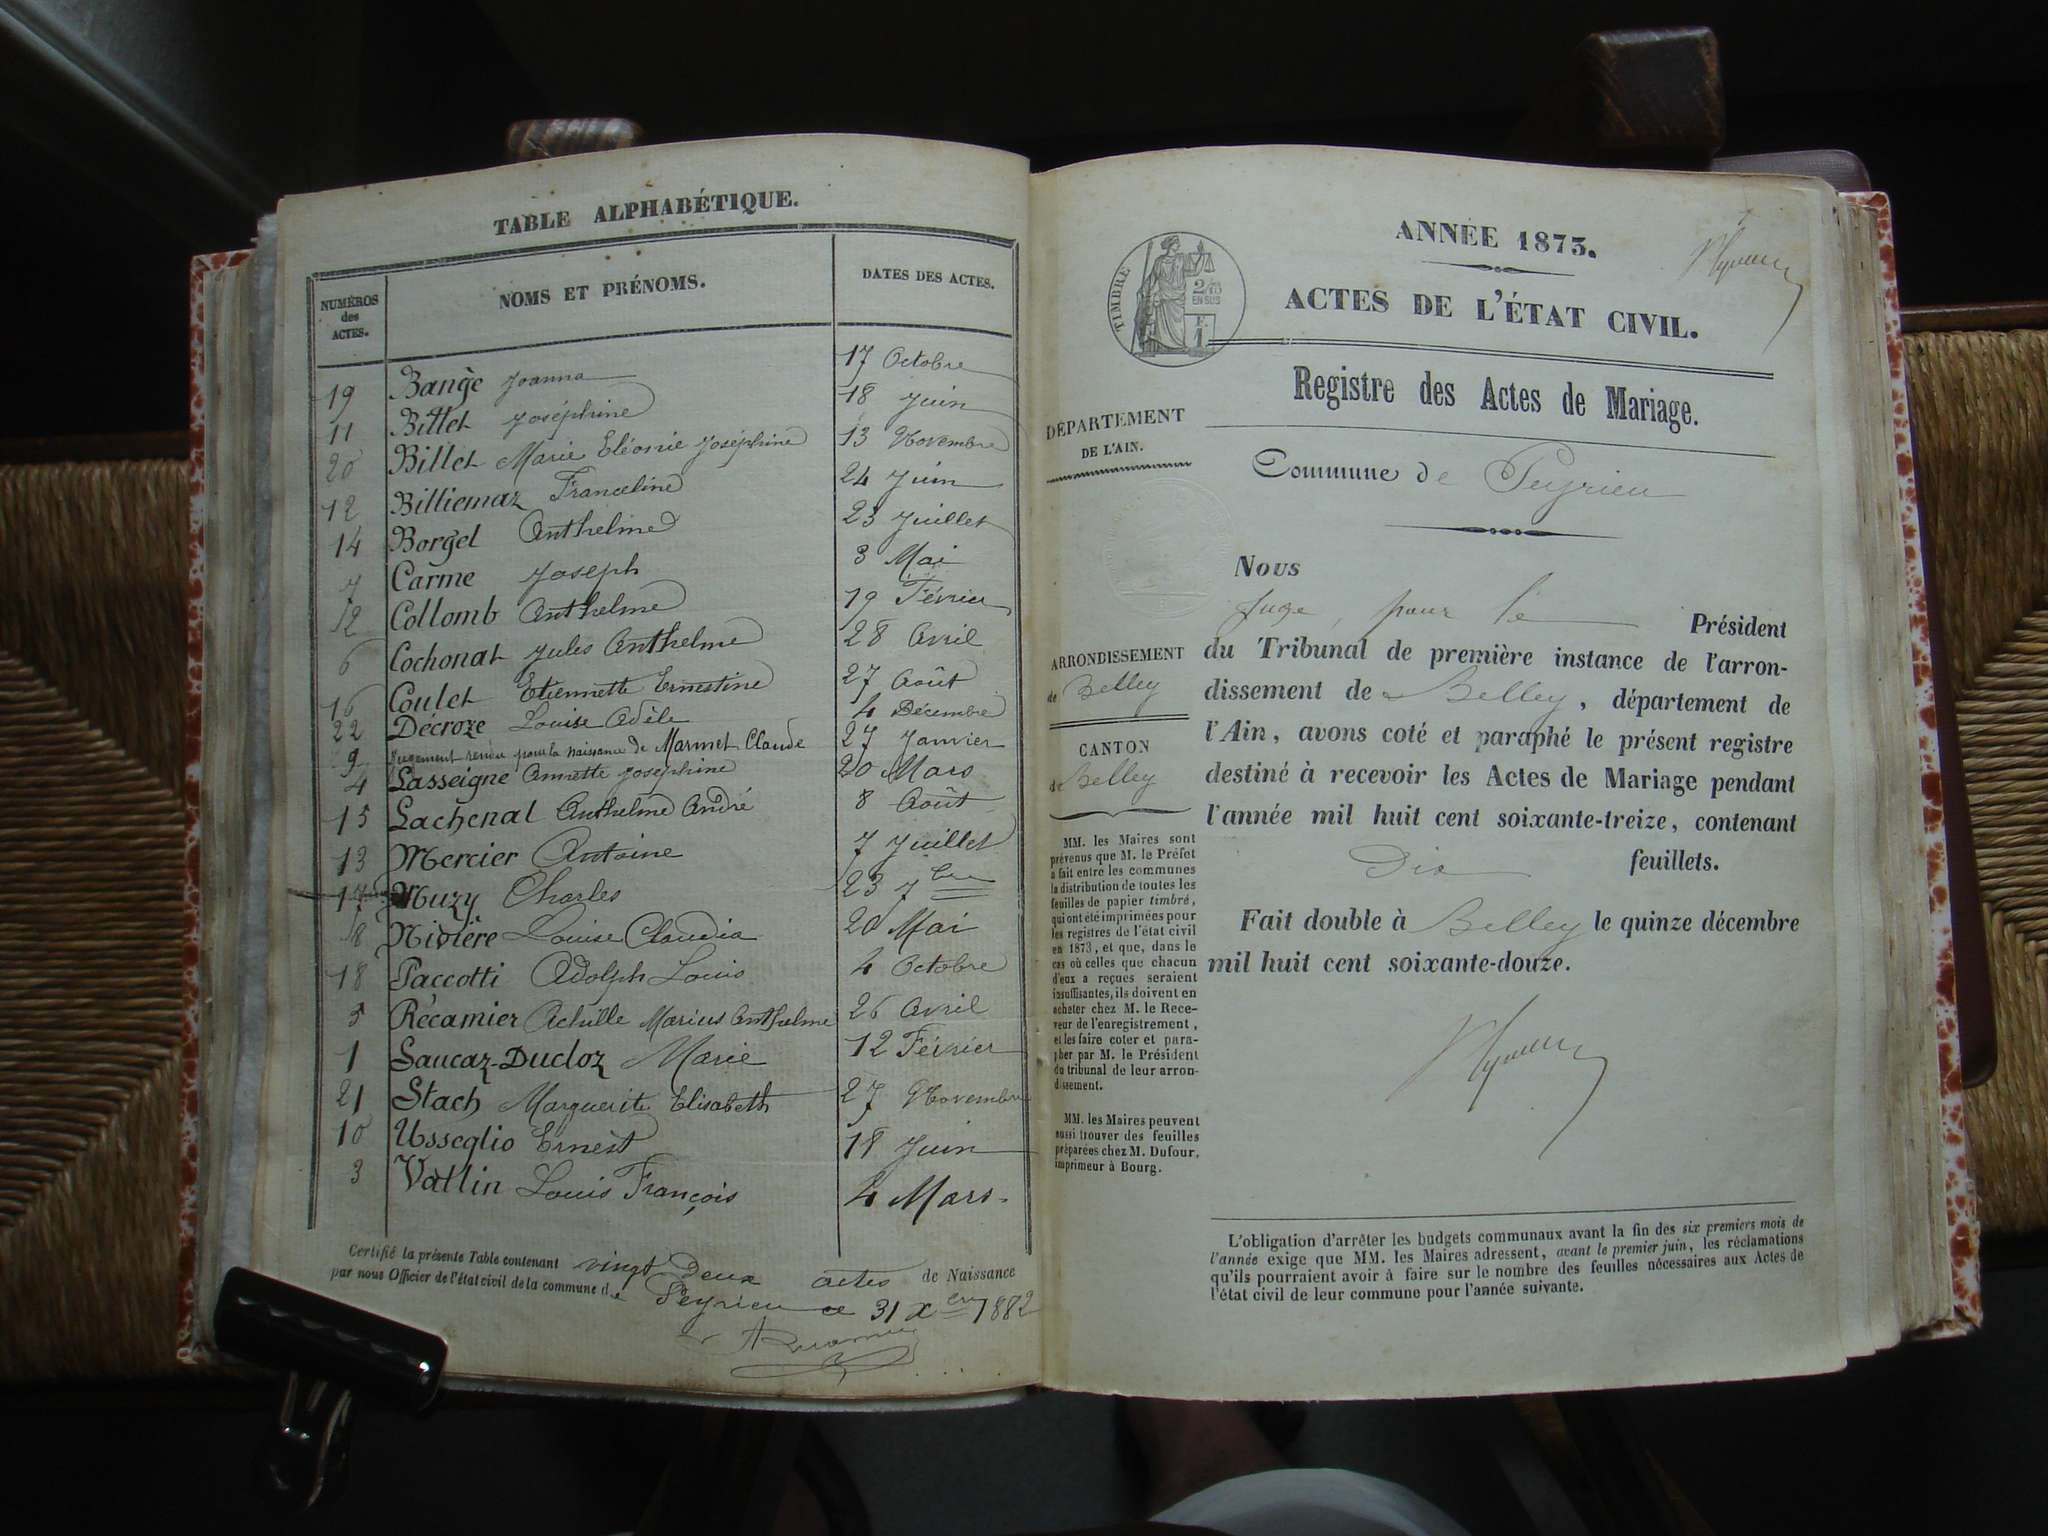 TABLE ALPHABÉTIQUE.
NUMÉROS des ACTES. NOMS ET PRÉNOMS. DATES DES ACTES.
19 Bangè Joanna 17 Octobre
11 Billet Joséphine 18 Juin
20 Billet Marie Eléonie Joséphine 13 Novembre
12 Billiemaz Franceline 24 Juin
14 Borgel Anthelme 23 Juillet
7 Carme Joseph 3 Mai
2 Collomb Anthelme 19 Février
6 Cochonat Jules Anthelme 28 Avril
16 Coulet Etiennette Ernestine 27 Août
22 Décroze Louise Adèle 4 Décembre
9 Jugement rendu pour la naissance de Marmet Claude 27 Janvier
4 Lasseigne Annette Joséphine 20 Mars
15 Lachenal Anthelme André 8 Août
13 Mercier Antoine 7 Juillet
17 Muzy Charles 23 7bre
8 Nidière Louise Claudia 20 Mai
18 Paccotti Adolph Louis 4 Octobre
5 Récamier Achille Marius Anthelme 26 Avril
1 Saucaz-Ducloz Marie 12 Février
21 Stach Marguerite Elisabeth 27 Novembre
10 Usseglio Ernest 18 Juin
3 Vallin Louis François 4 Mars.
Certifié la présente Table contenant vingt Deux actes de Naissance
par nous Officier de l'état civil de la commune de Peyrieu ce 31 Xbre 1882
ANNÉE 1873.
TIMBRE
2/10
EN SUS
F.
1
ACTES DE L'ÉTAT CIVIL.
Registre des Actes de Mariage.
DÉPARTEMENT
DE L'AIN.
Commune de Peyrieu
Nous
Juge, pour le Président
du Tribunal de première instance de l'arron-
dissement de Belley, département de
l'Ain, avons coté et paraphé le présent registre
destiné à recevoir les Actes de Mariage pendant
l'année mil huit cent soixante-treize, contenant
Dix feuillets.
Fait double à Belley le quinze décembre
mil huit cent soixante-douze.
ARRONDISSEMENT
de Belley
CANTON
de Belley
MM. les Maires sont
prévenus que M. le Préfet
a fait entre les communes
la distribution de toutes les
feuilles de papier timbré,
qui ont été imprimées pour
les registres de l'état civil
en 1873, et que, dans le
cas où celles que chacun
d'eux a reçues seraient
insuffisantes, ils doivent en
acheter chez M. le Rece-
veur de l'enregistrement,
et les faire coter et para-
pher par M. le Président
du tribunal de leur arron-
dissement.
MM. les Maires peuvent
aussi trouver des feuilles
préparées chez M. Dufour,
imprimeur à Bourg.
L'obligation d'arrêter les budgets communaux avant la fin des six premiers mois de
l'année exige que MM. les Maires adressent, avant le premier juin, les réclamations
qu'ils pourraient avoir à faire sur le nombre des feuilles nécessaires aux Actes de
l'état civil de leur commune pour l'année suivante.